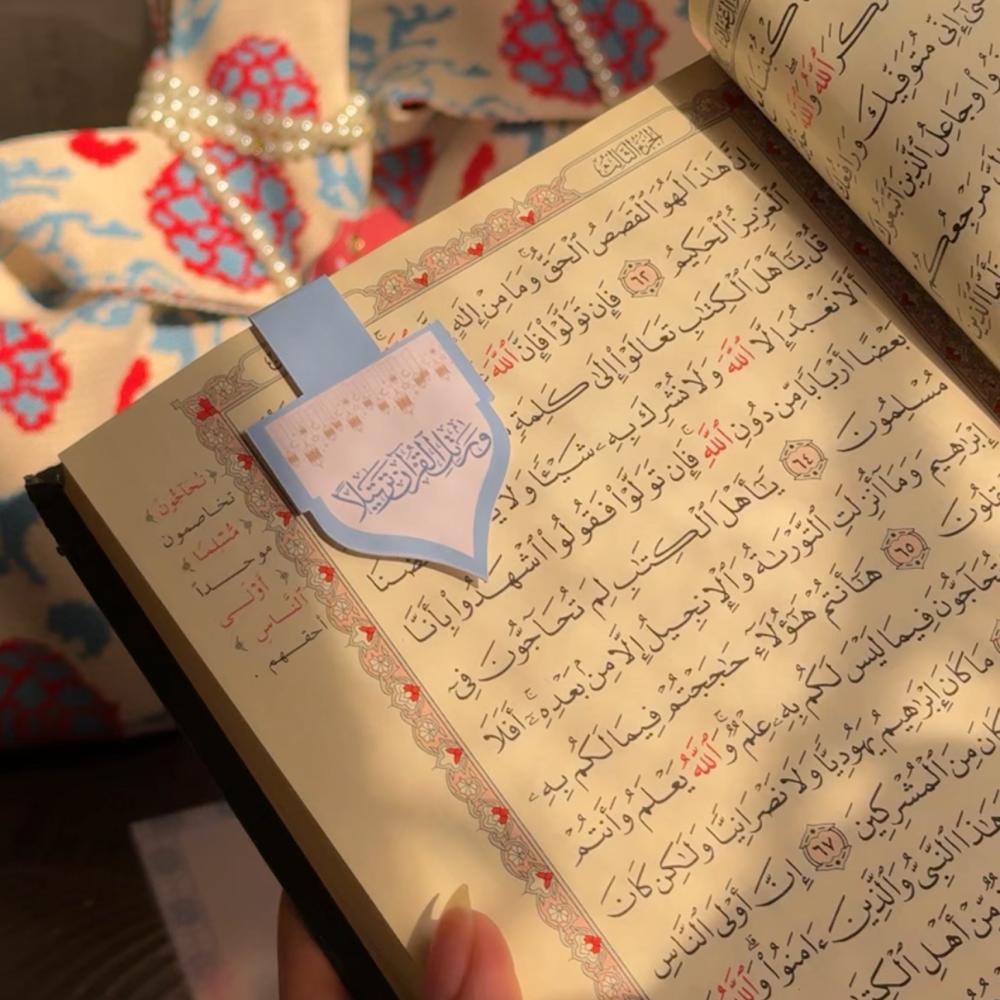 الجزء الثالث
إِنَّ هَٰذَا لَهُوَ ٱلْقَصَصُ ٱلْحَقُّ ۚ وَمَا مِنْ إِلَٰهٍ
ٱلْعَزِيزُ ٱلْحَكِيمُ ٦٢ فَإِن تَوَلَّوْا۟ فَإِنَّ ٱللَّهَ
قُلْ يَٰٓأَهْلَ ٱلْكِتَٰبِ تَعَالَوْا۟ إِلَىٰ كَلِمَةٍ
أَلَّا نَعْبُدَ إِلَّا ٱللَّهَ وَلَا نُشْرِكَ بِهِۦ شَيْـًٔا وَلَا
بَعْضًا أَرْبَابًا مِّن دُونِ ٱللَّهِ ۚ فَإِن تَوَلَّوْا۟ فَقُولُوا۟ ٱشْهَدُوا۟ بِأَنَّا
مُسْلِمُونَ ٦٤ يَٰٓأَهْلَ ٱلْكِتَٰبِ لِمَ تُحَآجُّونَ فِىٓ
إِبْرَٰهِيمَ وَمَآ أُنزِلَتِ ٱلتَّوْرَىٰةُ وَٱلْإِنجِيلُ إِلَّا مِنۢ بَعْدِهِۦٓ ۚ أَفَلَا
٦٥ هَٰٓأَنتُمْ هَٰٓؤُلَآءِ حَٰجَجْتُمْ فِيمَا لَكُم بِهِۦ
تُحَآجُّونَ فِيمَا لَيْسَ لَكُم بِهِۦ عِلْمٌ ۚ وَٱللَّهُ يَعْلَمُ وَأَنتُمْ
مَا كَانَ إِبْرَٰهِيمُ يَهُودِيًّا وَلَا نَصْرَانِيًّا وَلَٰكِن كَانَ
مِنَ ٱلْمُشْرِكِينَ ٦٧ إِنَّ أَوْلَى ٱلنَّاسِ
هَٰذَا ٱلنَّبِىُّ وَٱلَّذِينَ ءَامَنُوا۟ ۗ وَٱللَّهُ
مِّنْ أَهْلِ
وَرَتِّلِ الْقُرْآنَ تَرْتِيلًا
﴿تُحَاجُّونَ﴾
تخاصمون
﴿مُسْلِمًا﴾
موحداً
﴿أَوْلَى
ٱلنَّاسِ﴾
أحقهم.
إِنِّى مُتَوَفِّيكَ
وَجَاعِلُ ٱلَّذِينَ ٱتَّبَعُوكَ
مَرْجِعُكُمْ